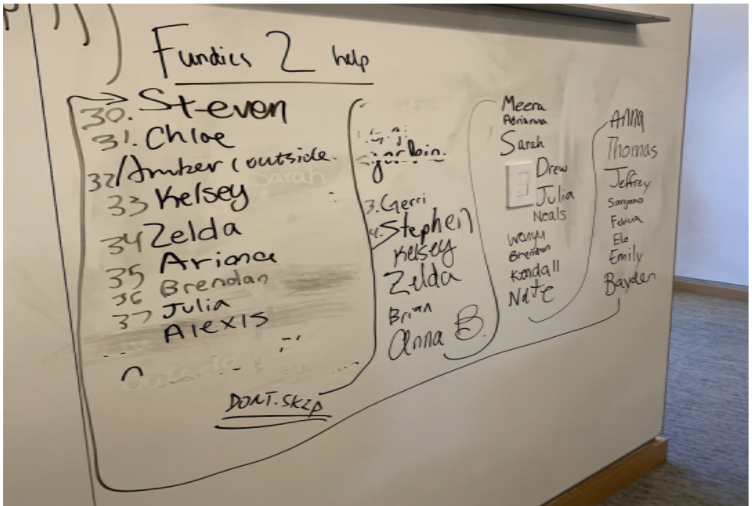 Fundies 2 help
30. Steven
31. Chloe
32/Amber (outside.
Sarah
33 Kelsey
34 Zelda
35 Ariana
36 Brendan
37 Julia
Alexis
DONT.SKIP
3. Gerri
Stephen
Kelsey
Zelda
Brian
Anna B.
Meera
Adrianna
Sarah
Drew
Julia
Neals
Wenyu
Brendan
Kendall
Nate
Anna
Thomas
Jeffrey
Emily
Bayden